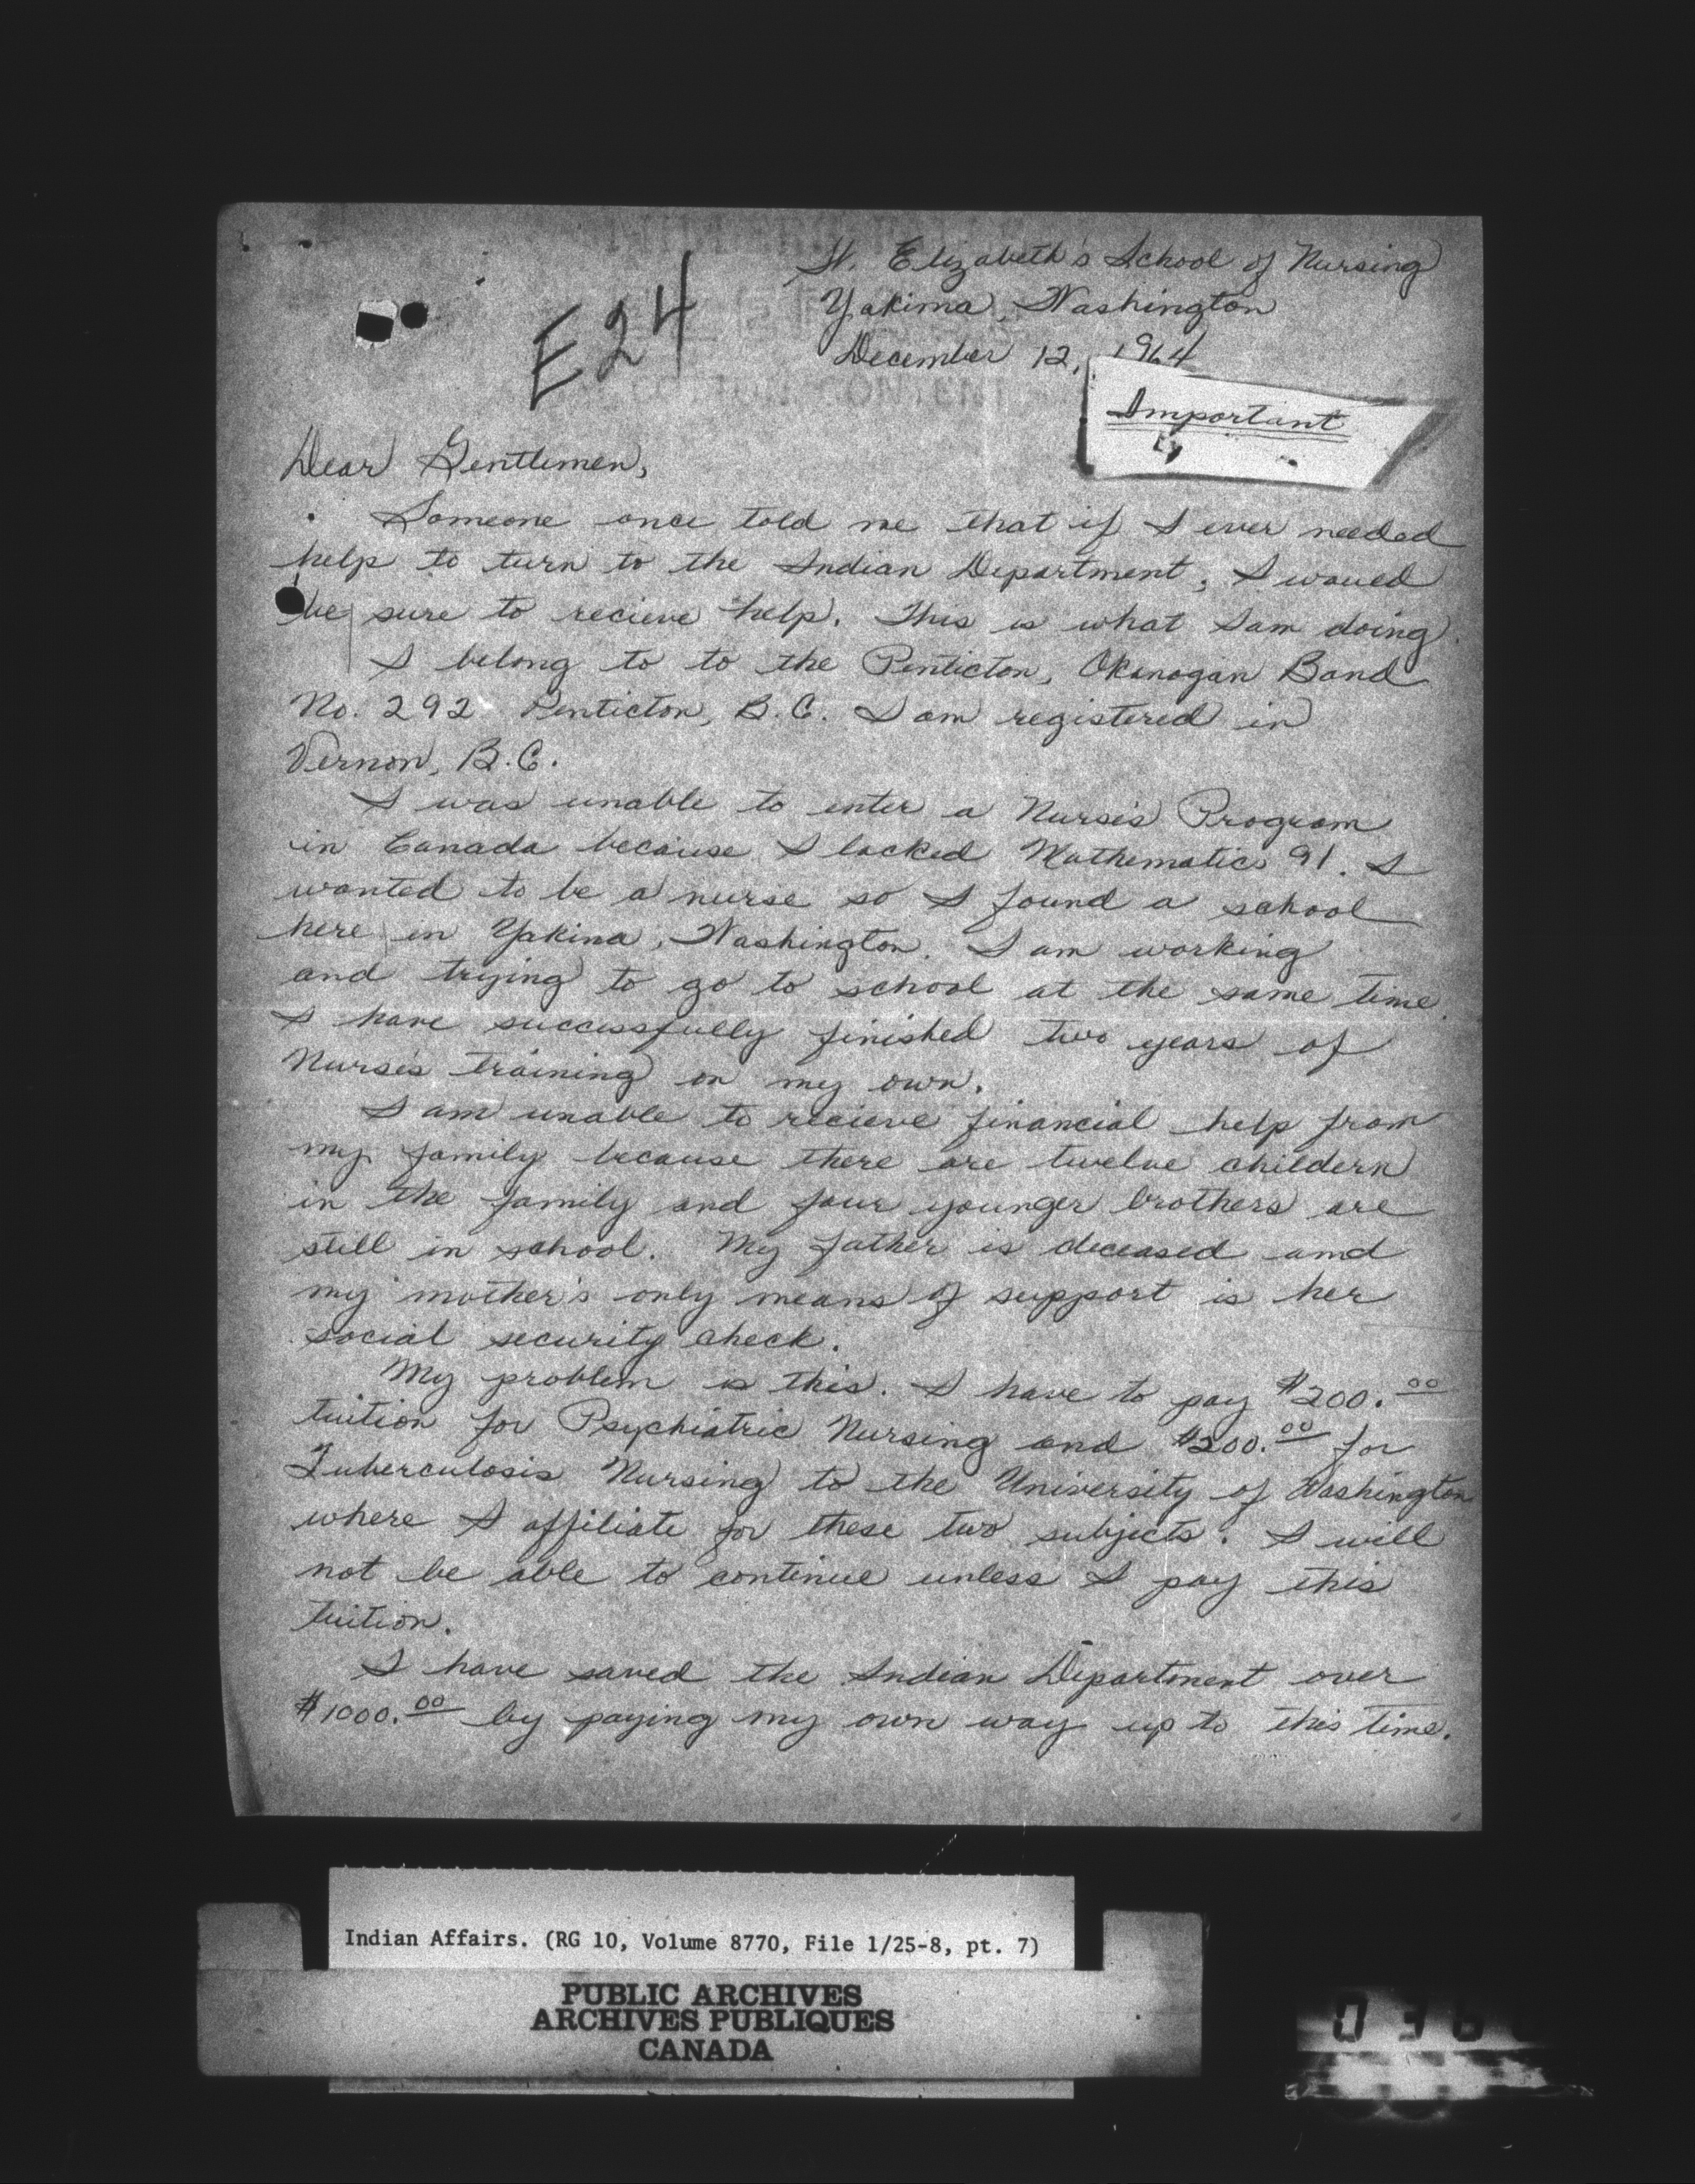 St. Elizabeth's School of Nursing
Yakima, Washington
December 12, 1964
E24
Important
Dear Gentlemen,
Someone once told me that if I ever needed
help to turn to the Indian Department, I woued
be sure to recieve help. This is what I am doing.
I belong to to the Penticton, Okanogan Band
No. 292 Penticton, B.C. I am registered in
Vernon, B.C.
I was unable to enter a Nurse's Program
in Canada because I lacked Mathematics 91. I
wanted to be a nurse so I found a school
here in Yakima, Washington. I am working
and trying to go to school at the same time.
I have successfully finished two years of
Nurse's training on my own.
I am unable to recieve financial help from
my family because there are twelve childern
in the family and four younger brothers are
still in school. My father is deceased and
my mother's only means of support is her
social security check.
My problem is this. I have to pay $200.00
tuition for Psychiatric Nursing and $200.00 for
Tuberculosis Nursing to the University of Washington
where I affiliate for these two subjects. I will
not be able to continue unless I pay this
tuition.
I have saved the Indian Department over
$1000.00 by paying my own way up to this time.
Indian Affairs. (RG 10, Volume 8770, File 1/25-8, pt. 7)
PUBLIC ARCHIVES
ARCHIVES PUBLIQUES
CANADA